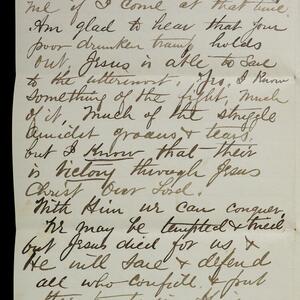 me if I come at that time.
Am glad to hear that your
poor drunken tramp holds
out. Jesus is able to save
to the uttermost. Yes, I know
something of the fight, much
of it, much of the struggle
amidst groans & tears.
but I know that their
is victory through Jesus
Christ Our Lord.
With Him we can conquer
We may be tempted & tried
but Jesus died for us, &
He will save & defend
all who confide & put
their trust in